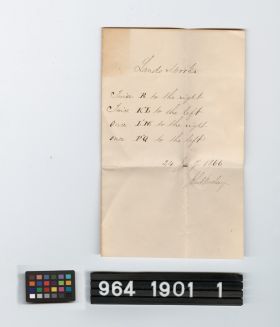 Land Works
Twice R to the right
Twice KL to the left
once to the right
once to the left
24 1866
964 1901 1